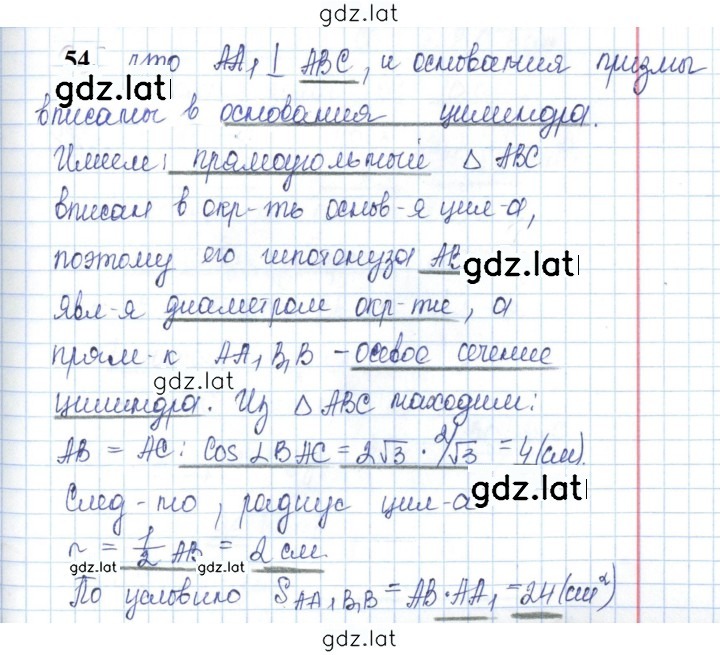 gdz.lat
54. что AA₁ ⊥ ABC, и основания призмы
gdz.lat
вписаны в основания цилиндра.
Имеем: прямоугольный △ ABC
вписан в окр-ть основ-я цил-а,
поэтому его гипотенуза AB
gdz.lat
явл-я диаметром окр-ти, а
прям-к AA₁B₁B – осевое сечение
gdz.lat
цилиндра. Из △ ABC находим:
AB = AC : cos ∠BAC = 2√3 · 2/√3 = 4 (см).
След-но, радиус цил-а
gdz.lat
r = 1/2 AB = 2 см.
gdz.lat gdz.lat
По условию S AA₁B₁B = AB · AA₁ = 24 (см²)
gdz.lat